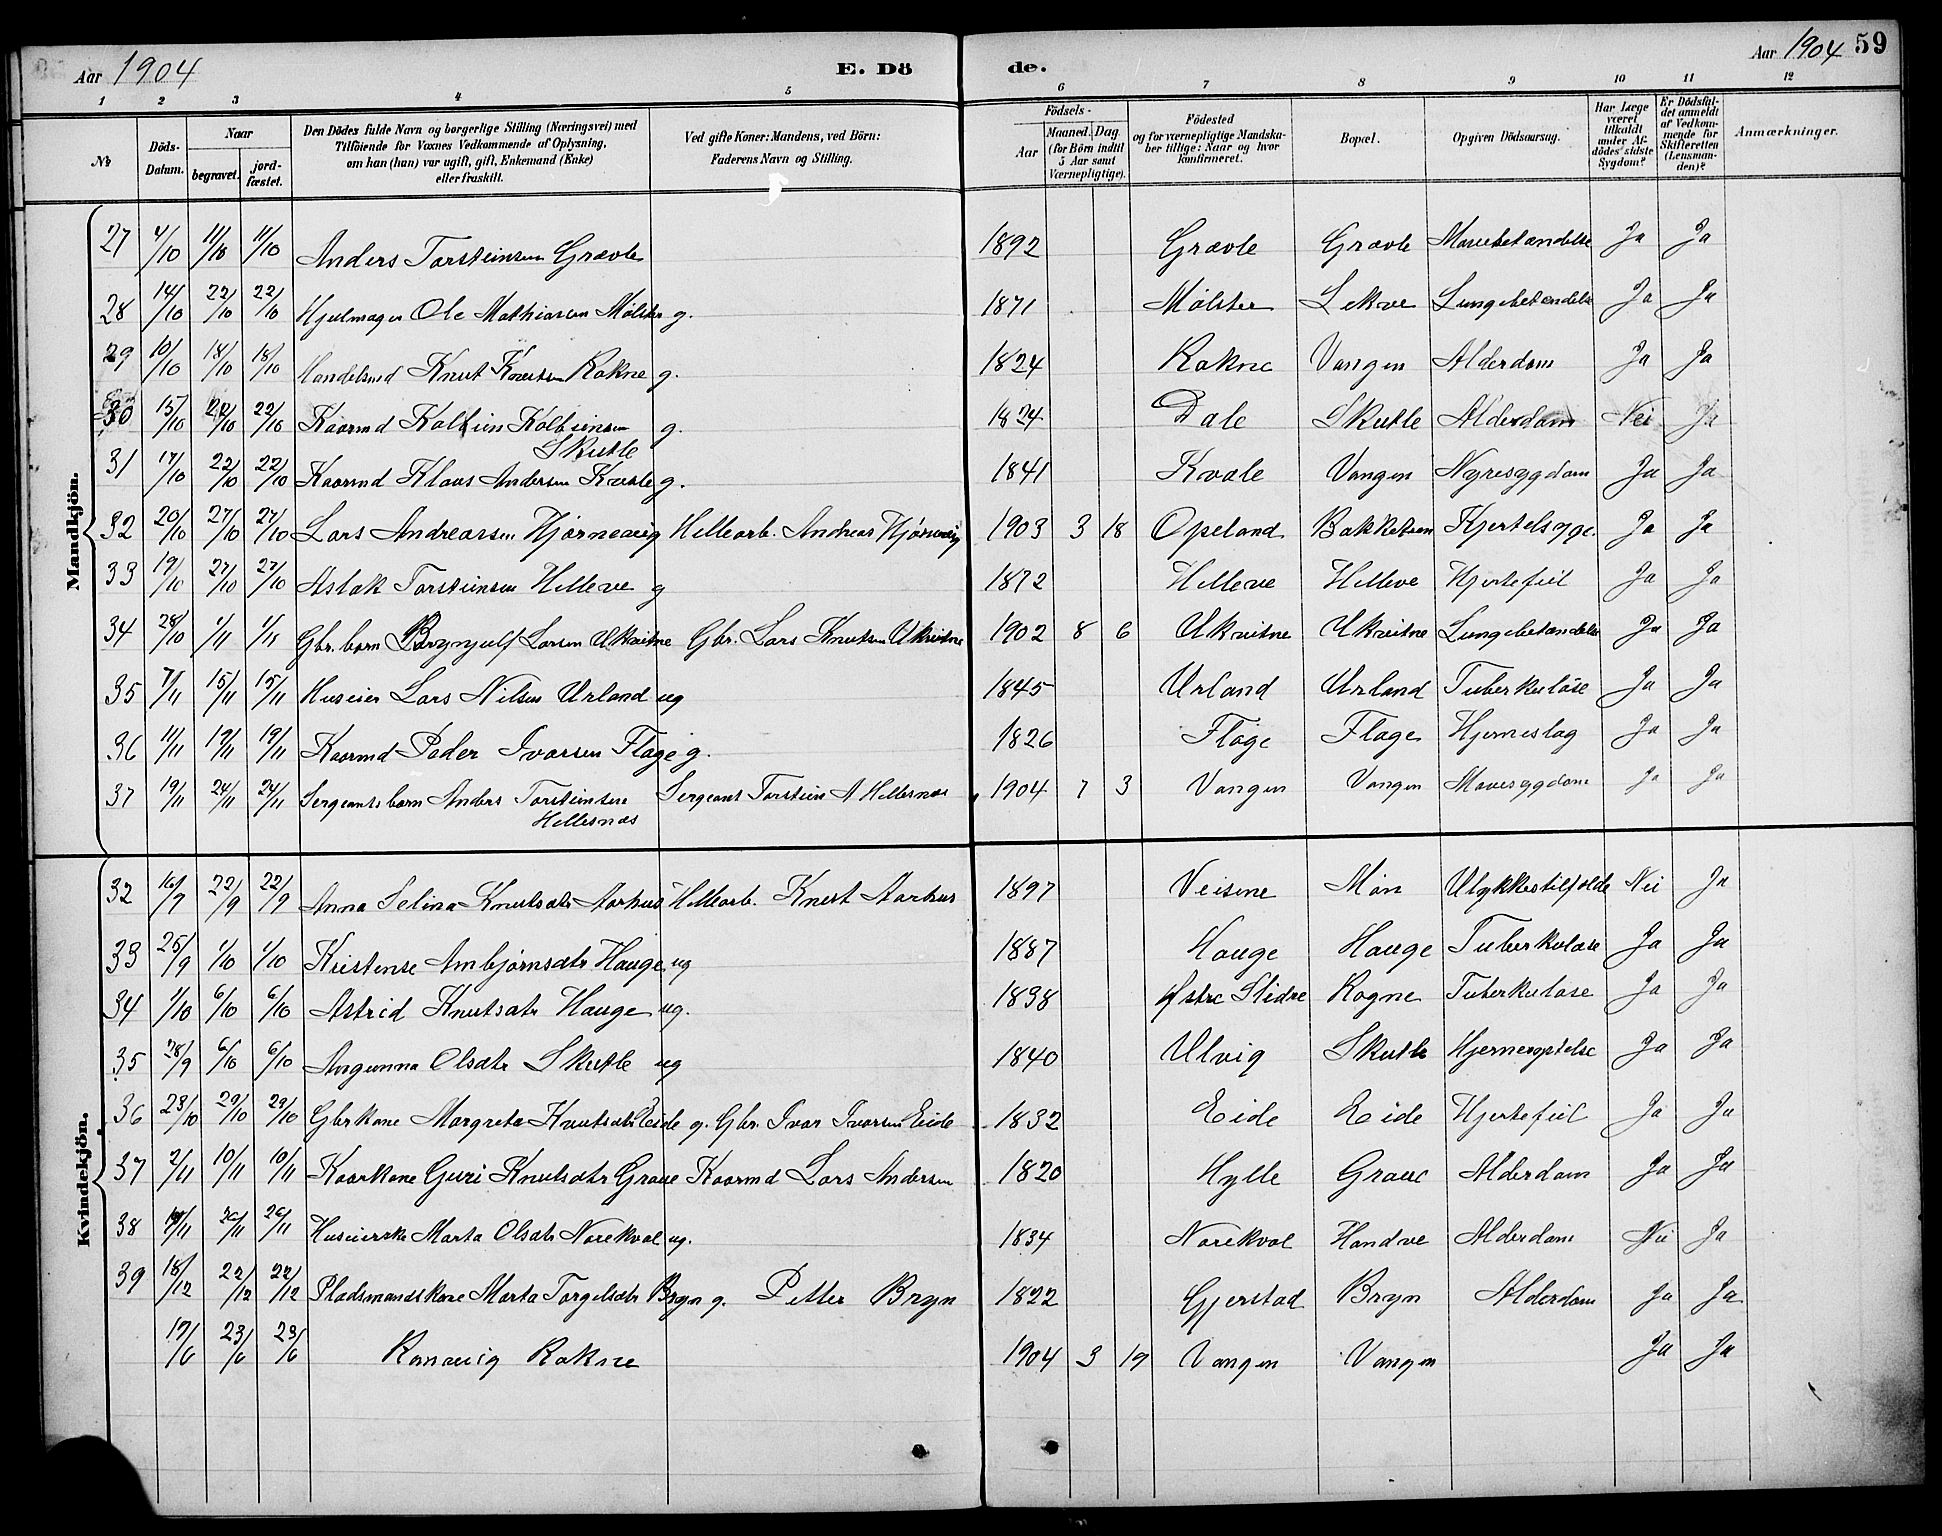 Aar 1904 E. Dö de. Aar 1904 59
1 2 3 4 5 6 7 8 9 10 11 12
№ Döds-Datum. Naar begravet. jord-fæstet. Den Dödes fulde Navn og borgerlige Stilling (Næringsvei) med Tilföiende for Voxnes Vedkommende af Oplysning, om han (hun) var ugift, gift, Enkemand (Enke) eller fraskilt. Ved gifte Koner: Mandens, ved Börn: Faderens Navn og Stilling. Födsels- Aar Maaned. Dag (for Börn indtil 5 Aar samt Værnepligtige). Födested og for værnepligtige Mandskaber tillige: Naar og hvor konfirmeret. Bopæl. Opgiven Dödsaarsag. Har Læge været tilkaldt under Afdödes sidste Sygdom? Er Dödsfaldet anmeldt af Vedkommende for Skifteretten (Lensmanden)? Anmærkninger.
Mandkjön.
27 4/10 11/10 11/10 Anders Torsteinsen Grævle 1892 Grævle Grævle Mavebetændelse Ja Ja
28 14/10 22/10 22/10 Hjulmager Ole Mathiasen Mölster g. 1871 Mölster Lekve Lungebetændelse Ja Ja
29 10/10 18/10 18/10 Handelsmd Knut Knutsen Rokne g. 1824 Rokne Vangen Alderdom Ja Ja
30 15/10 22/10 22/10 Kaarmd Kolbein Kolbeinsen Skutle g. 1824 Dale Skutle Alderdom Nei Ja
31 17/10 22/10 22/10 Kaarmd Klaus Andersen Kvale g. 1841 Kvale Vangen Nyresygdom Ja Ja
32 20/10 27/10 27/10 Lars Andreassen Hjörnevig Hellearb. Andreas Hjörnevig 1903 3 18 Opeland Bakketun Kjertelsyge. Ja Ja
33 19/10 27/10 27/10 Aslak Torsteinsen Helleve g 1872 Helleve Helleve Hjertefeil Ja Ja
34 28/10 1/11 1/11 Gbr. barn Brynjulf Larsen Ukvitne Gbr. Lars Knutsen Ukvitne 1902 8 6 Ukvitne Ukvitne Lungebetændelse Ja Ja
35 7/11 15/11 15/11 Huseier Lars Nilsen Urland ug 1845 Urland Urland Tuberkulöse Ja Ja
36 11/11 19/11 19/11 Kaarmd Peder Ivarsen Flage g. 1826 Flage Flage Hjerneslag Ja Ja
37 19/11 24/11 24/11 Sergeants barn Anders Torsteinsen Hellesnæs Sergeant Torstein A Hellesnæs 1904 7 3 Vangen Vangen Mavesygdom Ja Ja
Kvindekjön.
32 16/9 22/9 22/9 Anna Selina Knutsdtr Aarhus Hellearb. Knut Aarhus 1897 Veisene Mön Ulykkestilfælde Nei Ja
33 25/9 1/10 1/10 Kristense Ambjörnsdtr Hauge ug 1887 Hauge Hauge Tuberkulose Ja Ja
34 1/10 6/10 6/10 Astrid Knutsdtr Hauge ug. 1838 Östre Slidre Rogne Tuberkulose Ja Ja
35 28/9 6/10 6/10 Angunna Olsdtr Skutle ug 1840 Ulvig Skutle Ja Ja
36 23/10 29/10 29/10 Gbrkone Margreta Knutsdtr Eide g. Gbr. Ivar Ivarsen Eide 1832 Eide Eide Hjertefeil Ja Ja
37 2/11 10/11 10/11 Kaarkone Guri Knutsdtr Graue Kaarmd Lars Andersen 1820 Hylle Graue Alderdom Ja Ja
38 19/11 26/11 26/11 Huseierske Marta Olsdtr Norekval ug. 1834 Norekval Handve Alderdom Nei Ja
39 18/12 22/12 22/12 Pladsmandskone Marta Torgelsdtr Bryn g. Petter Bryn 1822 Gjerstad Bryn Alderdom Ja Ja
17/6 23/6 23/6 Ranveig Rokne 1904 3 19 Vangen Vangen Ja Ja